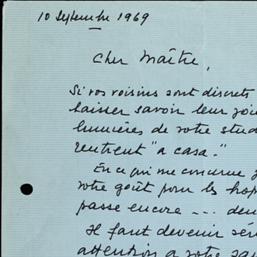 10 Septembre 1969
Cher Maître,
Si vos voisins sont discrets
laisser savoir leur joi
lumières de votre stud
rentrent "a casa."
En ce qui me concerne j
votre goût pour les hop
passe encore --- deu
Il faut devenir sér
attention a votre sa